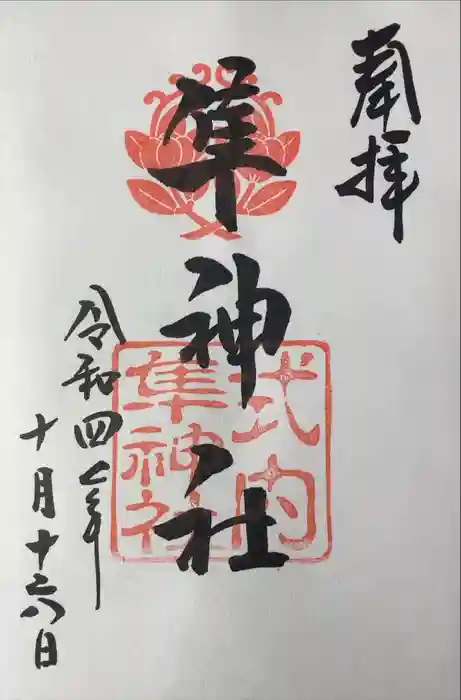 奉拝
隼神社
式内
隼神社
令和四年
十月十六日